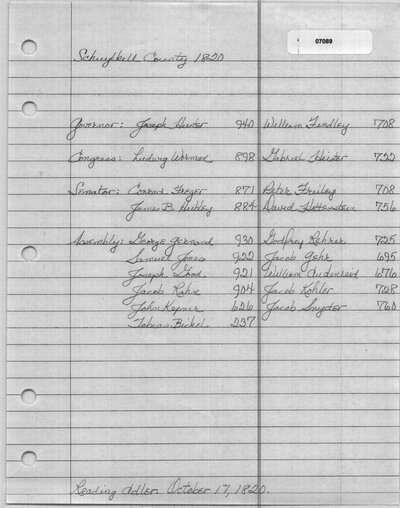 07089
Schuylkill County 1820
Governor: Joseph Hiester 940 William Findley 708
Congress: Ludwig Worman 898 Gabriel Hiester 722
Senator: Conrad Feger 871 Peter Frailey 708
James B. Hubley 884 David Hottenstein 756
Assembly: George Gernand 930 Godfrey Lehrer 725
Samuel Jones 922 Jacob Gehr 695
Joseph Good 921 William Audenreid 676
Jacob Rahn 904 Jacob Kohler 728
John Kepner 626 Jacob Snyder 760
Tobias Bickel 237
Reading Adler October 17, 1820.